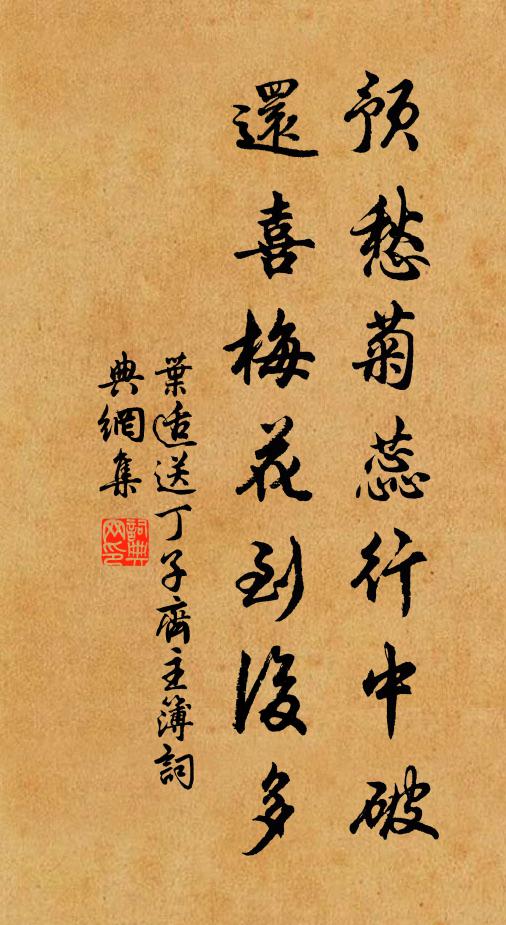 預愁菊蕊行中破
還喜梅花到後多
葉適送丁子齊主簿詞
典網集
詞典网印